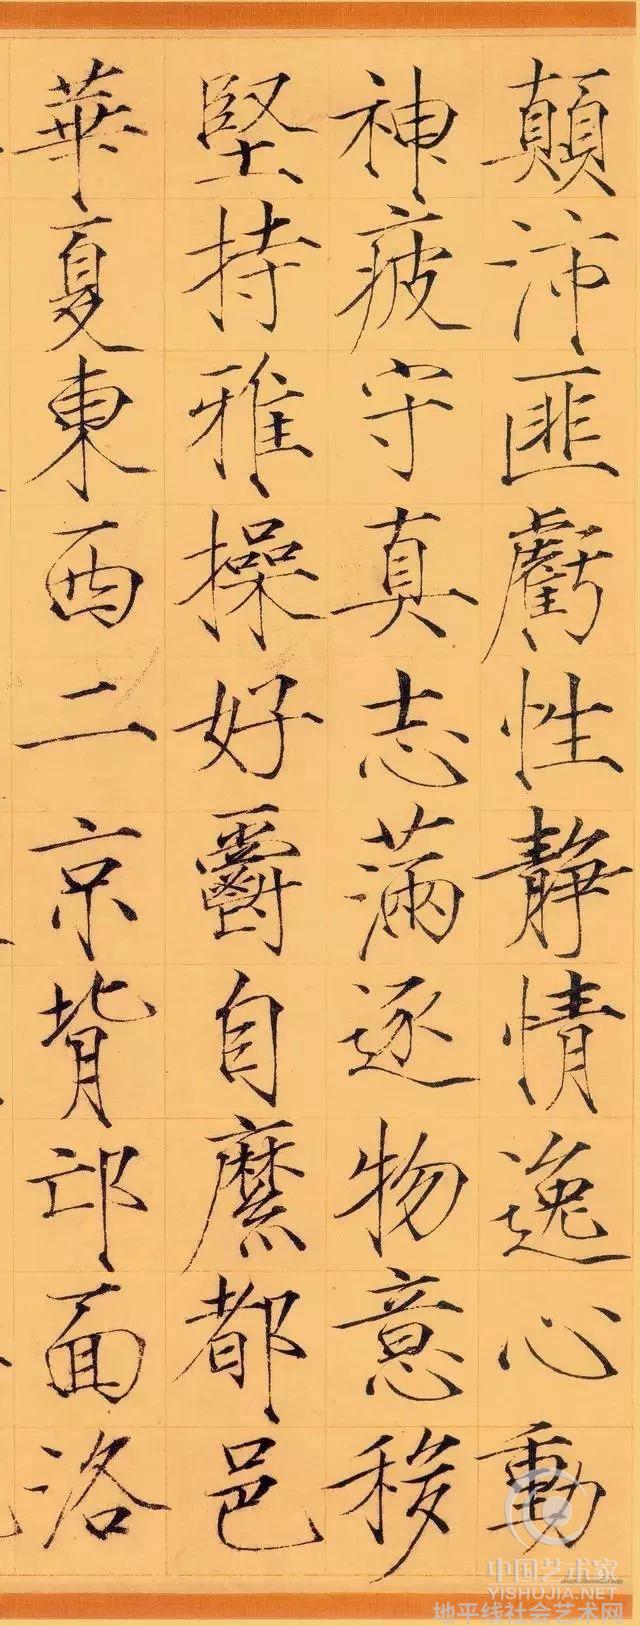 顛沛匪虧性靜情逸心動
神疲守真志滿逐物意移
堅持雅操好爵自縻都邑
華夏東西二京背邙面洛
中国艺术家
YISHUJIA.NET
地平线社会艺术网